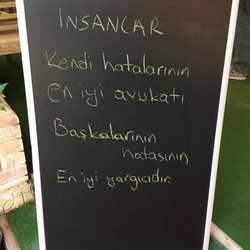 İNSANLAR
Kendi hatalarının
en iyi avukatı.
Başkalarının
hatasının
En iyi yargıcıdır.